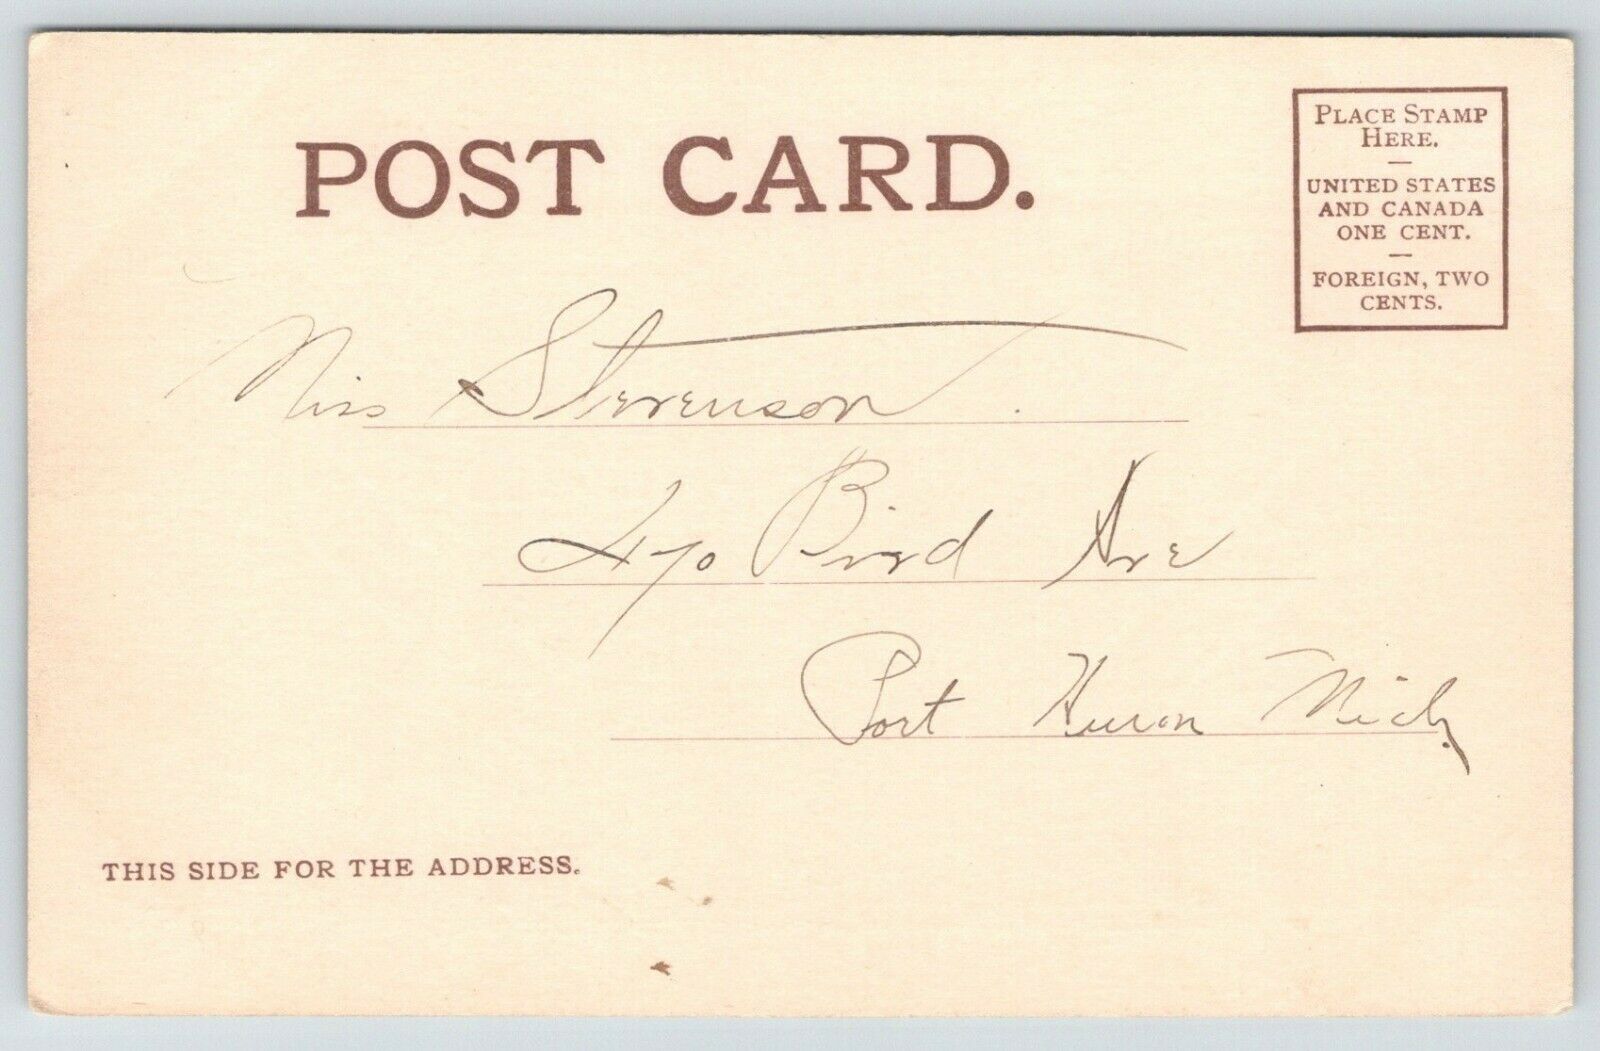 POST CARD.
PLACE STAMP
HERE.
UNITED STATES
AND CANADA
ONE CENT.
FOREIGN, TWO
CENTS.
Miss Stevenson.
470 Bird Ave
Port Huron Mich.
THIS SIDE FOR THE ADDRESS.